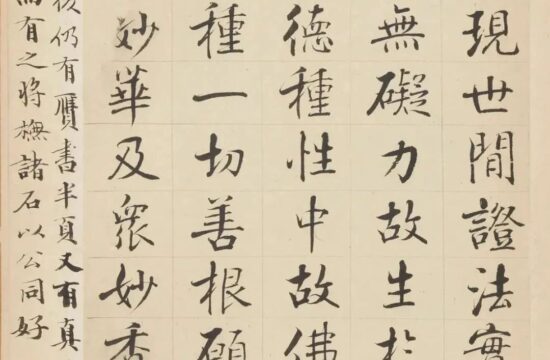 現世間證法實
無礙力故生於
德種性中故佛
種一切善根願
妙華及眾妙香
後仍有贗書半頁又有真
而有之將橅諸石以公同好